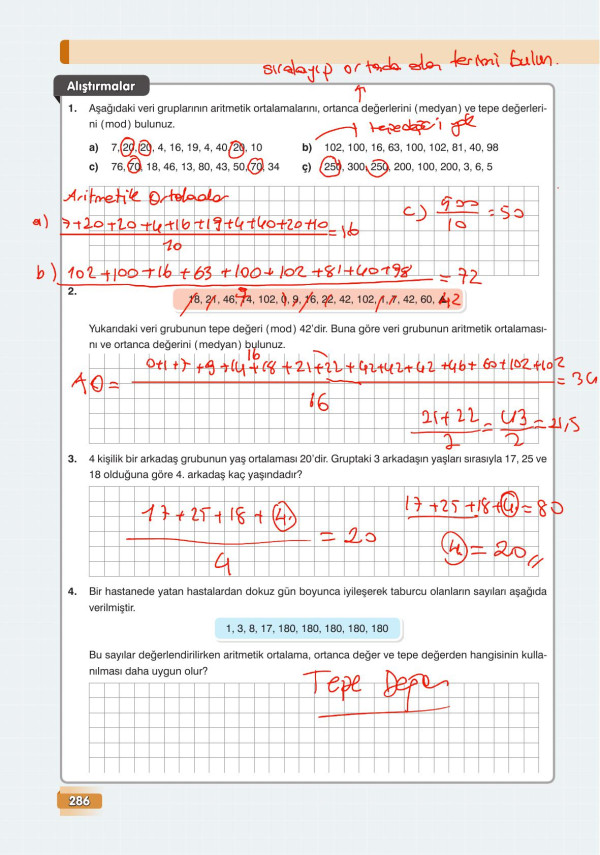 sıralayıp ortada olan terimi bulun.
Alıştırmalar
1. Aşağıdaki veri gruplarının aritmetik ortalamalarını, ortanca değerlerini (medyan) ve tepe değerleri-
ni (mod) bulunuz.
tepe değeri yok
a) 7, 20, 20, 4, 16, 19, 4, 40, 20, 10
b) 102, 100, 16, 63, 100, 102, 81, 40, 98
c) 76, 70, 18, 46, 13, 80, 43, 50, 70, 34
ç) 250, 300, 250, 200, 100, 200, 3, 6, 5
Aritmetik Ortalama
a) 7+20+20+4+16+19+4+40+20+10 = 16
10
c) 500 = 50
10
b) 102+100+16+63+100+102+81+40+98 = 72
2.
18, 21, 46, 74, 102, 0, 9, 16, 22, 42, 102, 1, 7, 42, 60, 42
Yukarıdaki veri grubunun tepe değeri (mod) 42'dir. Buna göre veri grubunun aritmetik ortalaması-
nı ve ortanca değerini (medyan) bulunuz.
16
AO = 0+1+7+9+14+18+21+22+42+42+42+46+60+102+102 = 34
16
21+22 = 43 = 21,5
2 2
3. 4 kişilik bir arkadaş grubunun yaş ortalaması 20'dir. Gruptaki 3 arkadaşın yaşları sırasıyla 17, 25 ve
18 olduğuna göre 4. arkadaş kaç yaşındadır?
17+25+18+4. = 20
4
17+25+18+4. = 80
4. = 20
4. Bir hastanede yatan hastalardan dokuz gün boyunca iyileşerek taburcu olanların sayıları aşağıda
verilmiştir.
1, 3, 8, 17, 180, 180, 180, 180, 180
Bu sayılar değerlendirilirken aritmetik ortalama, ortanca değer ve tepe değerden hangisinin kulla-
nılması daha uygun olur?
Tepe Değer
286